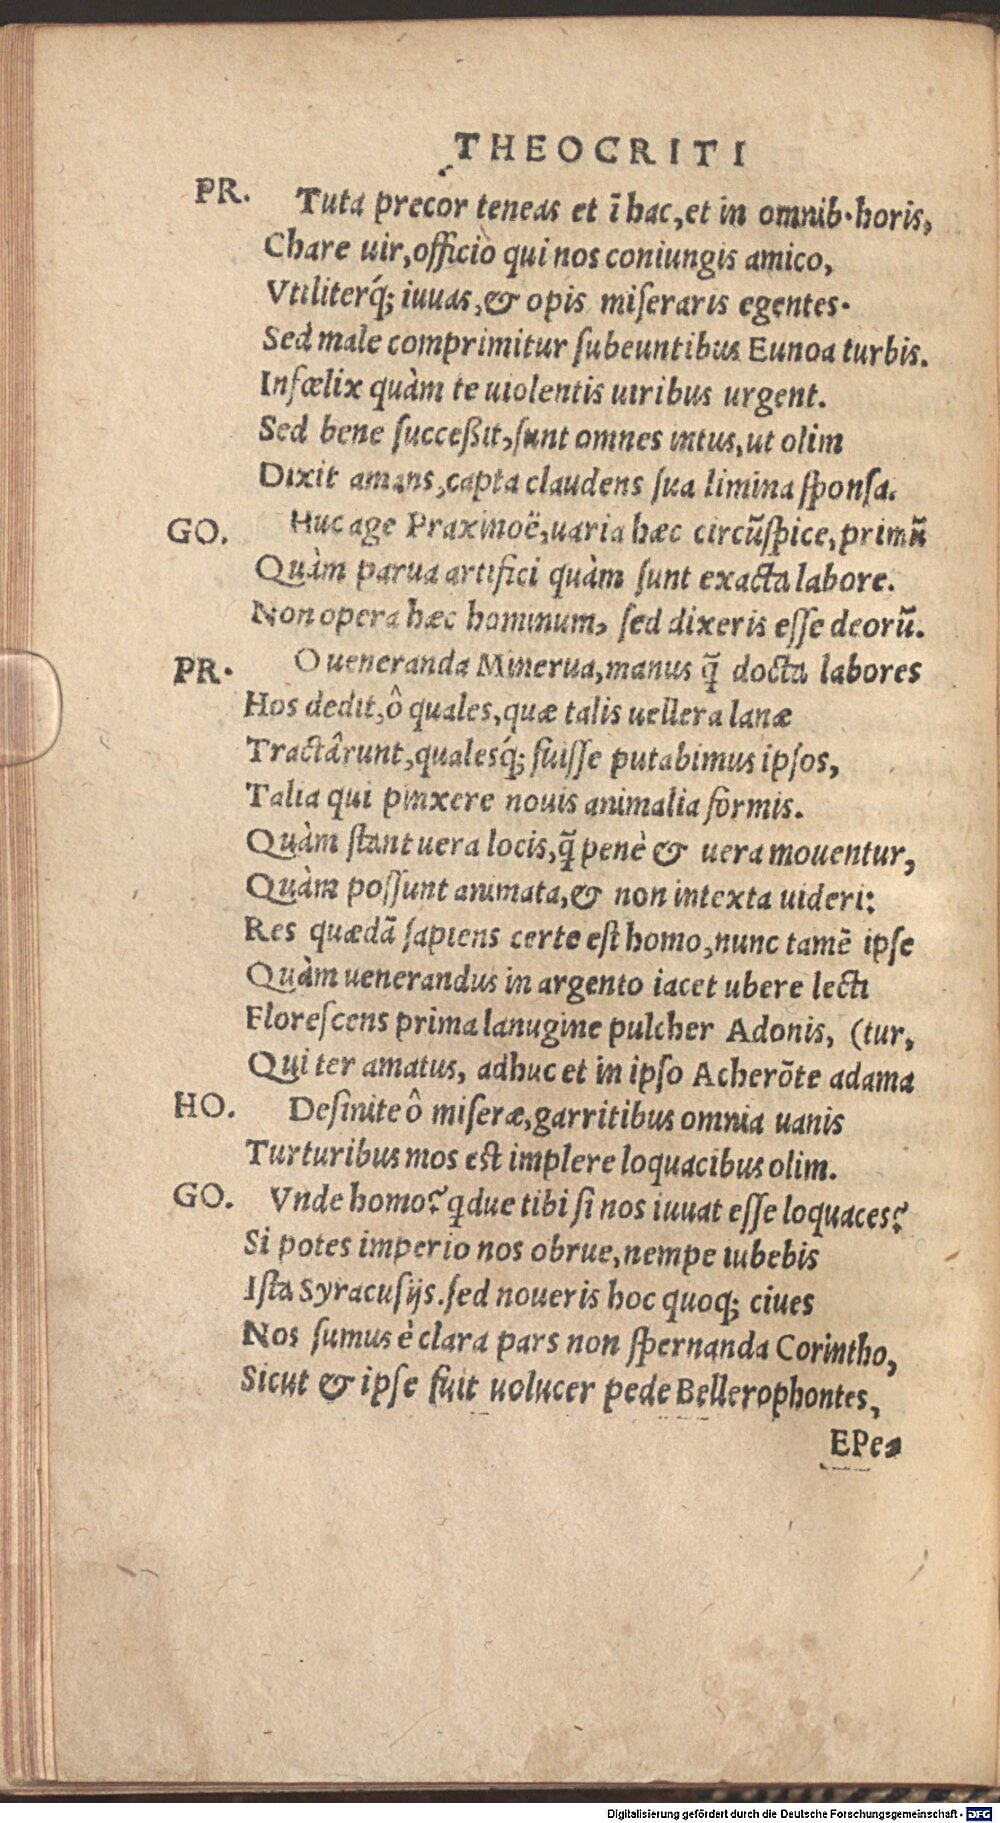 THEOCRITI
PR. Tuta precor teneas et ī hac, et in omnib. horis,
Chare uir, officio qui nos coniungis amico,
Vtiliterq́; iuuas, & opis miſeraris egentes.
Sed male comprimitur ſubeuntibus Eunoa turbis.
Infœlix quàm te uiolentis uiribus urgent.
Sed bene ſucceßit, ſunt omnes intus, ut olim
Dixit amans, capta claudens ſua limina ſponſa.
GO. Huc age Praxinoë, uaria hæc circūſpice, primū
Quàm parua artifici quàm ſunt exacta labore.
Non opera hæc hominum, ſed dixeris eſſe deorū.
PR. O ueneranda Minerua, manus q̃ docta labores
Hos dedit, ô quales, quæ talis uellera lanæ
Tractârunt, qualesq́; fuiſſe putabimus ipſos,
Talia qui pinxere nouis animalia formis.
Quàm ſtant uera locis, q̃ penè & uera mouentur,
Quàm poſſunt animata, & non intexta uideri:
Res quædã ſapiens certe eſt homo, nunc tamē ipſe
Quàm uenerandus in argento iacet ubere lecti
Floreſcens prima lanugine pulcher Adonis, (tur,
Qui ter amatus, adhuc et in ipſo Acherōte adama
HO. Deſinite ô miſeræ, garritibus omnia uanis
Turturibus mos eſt implere loquacibus olim.
GO. Vnde homo? qdue tibi ſi nos iuuat eſſe loquaces?
Si potes imperio nos obrue, nempe iubebis
Iſta Syracuſijs. ſed noueris hoc quoq; ciues
Nos ſumus è clara pars non ſpernanda Corintho,
Sicut & ipſe fuit uolucer pede Bellerophontes,
EPe-
Digitalisierung gefördert durch die Deutsche Forschungsgemeinschaft - DFG